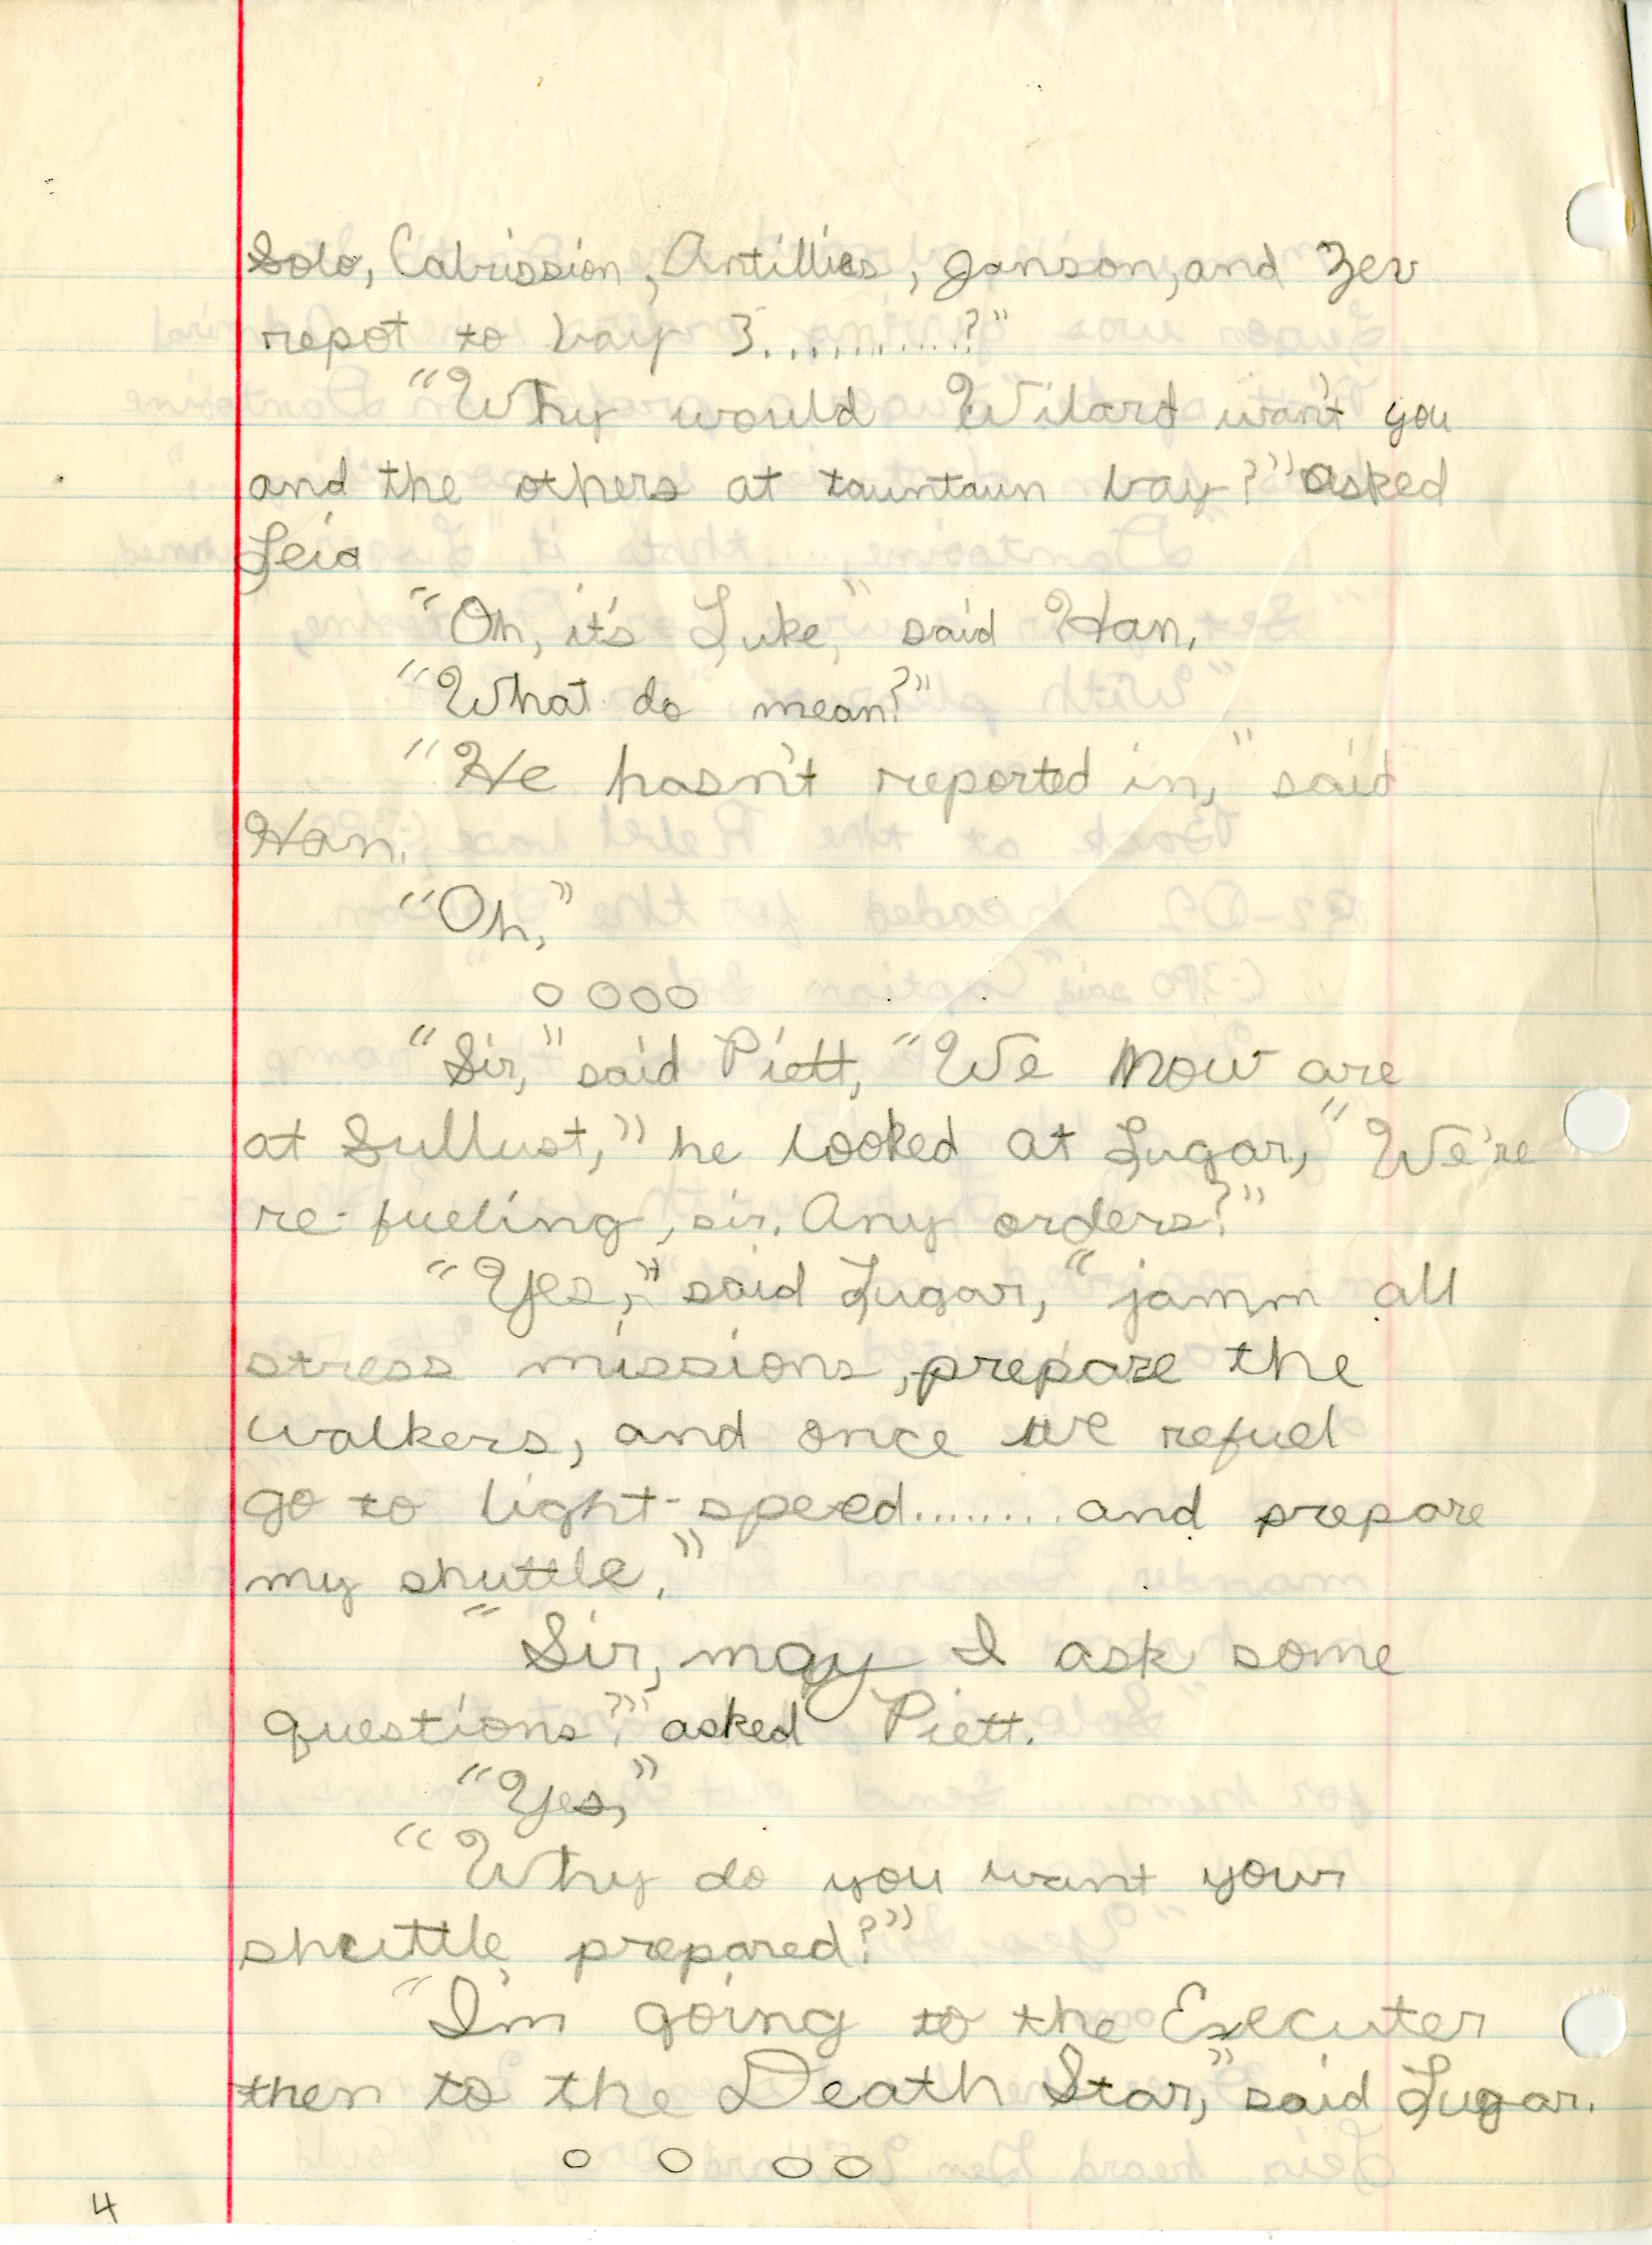 Solo, Calrission, Antillies, Janson, and Zev
repot to bay 3...........?"
"Why would Wilard want you
and the others at tauntaun bay?" asked
Leia
"Oh, it's Luke," said Han.
"What do mean?"
"He hasn't reported in," said
Han.
"Oh,"
o o o o
"Sir," said Piett, "We now are
at Sullust," he looked at Lugar, "We're
re-fueling, sir. Any orders?"
"Yes," said Lugar, "jamm all
stress missions, prepare the
walkers, and once we refuel
go to light-speed........and prepare
my shuttle."
"Sir, may I ask some
questions?" asked Piett.
"Yes,"
"Why do you want your
shuttle prepared?"
"I'm going to the Executer
then to the Death Star," said Lugar.
o o o o
4